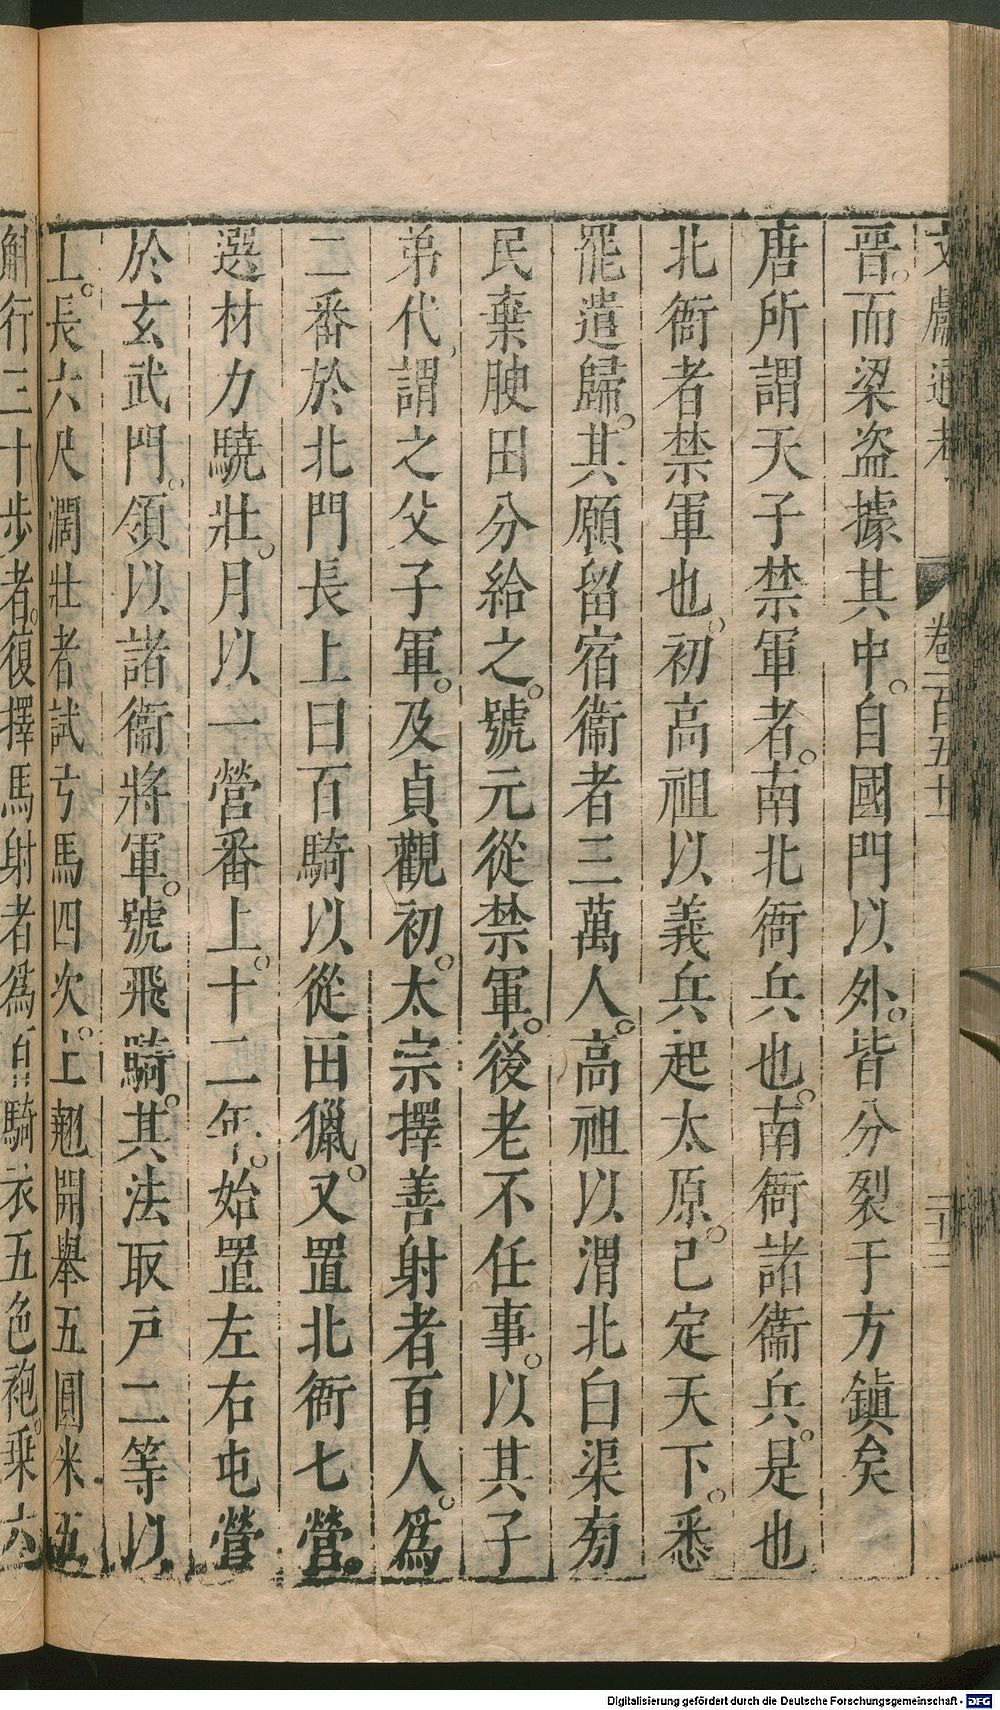 文獻通考 卷一百五十一
晉。而梁盜據其中。自國門以外。皆分裂于方鎮矣
唐所謂天子禁軍者。南北衙兵也。南衙諸衞兵。是也
北衙者禁軍也。初高祖以義兵起太原。已定天下。悉
罷遣歸。其願留宿衞者三萬人。高祖以渭北白渠旁
民棄腴田分給之。號元從禁軍。後老不任事。以其子
弟代。謂之父子軍。及貞觀初。太宗擇善射者百人。爲
二番於北門長上曰百騎以從田獵。又置北衙七營。
選材力驍壯。月以一營番上。十二年。始置左右屯營
於玄武門。領以諸衞將軍。號飛騎。其法取戸二等以
上。長六尺濶壯者試弓馬四次。上翹關舉五圓米五
斛行三十步者。復擇馬射者爲百騎衣五色袍。乘六
Digitalisierung gefördert durch die Deutsche Forschungsgemeinschaft - DFG